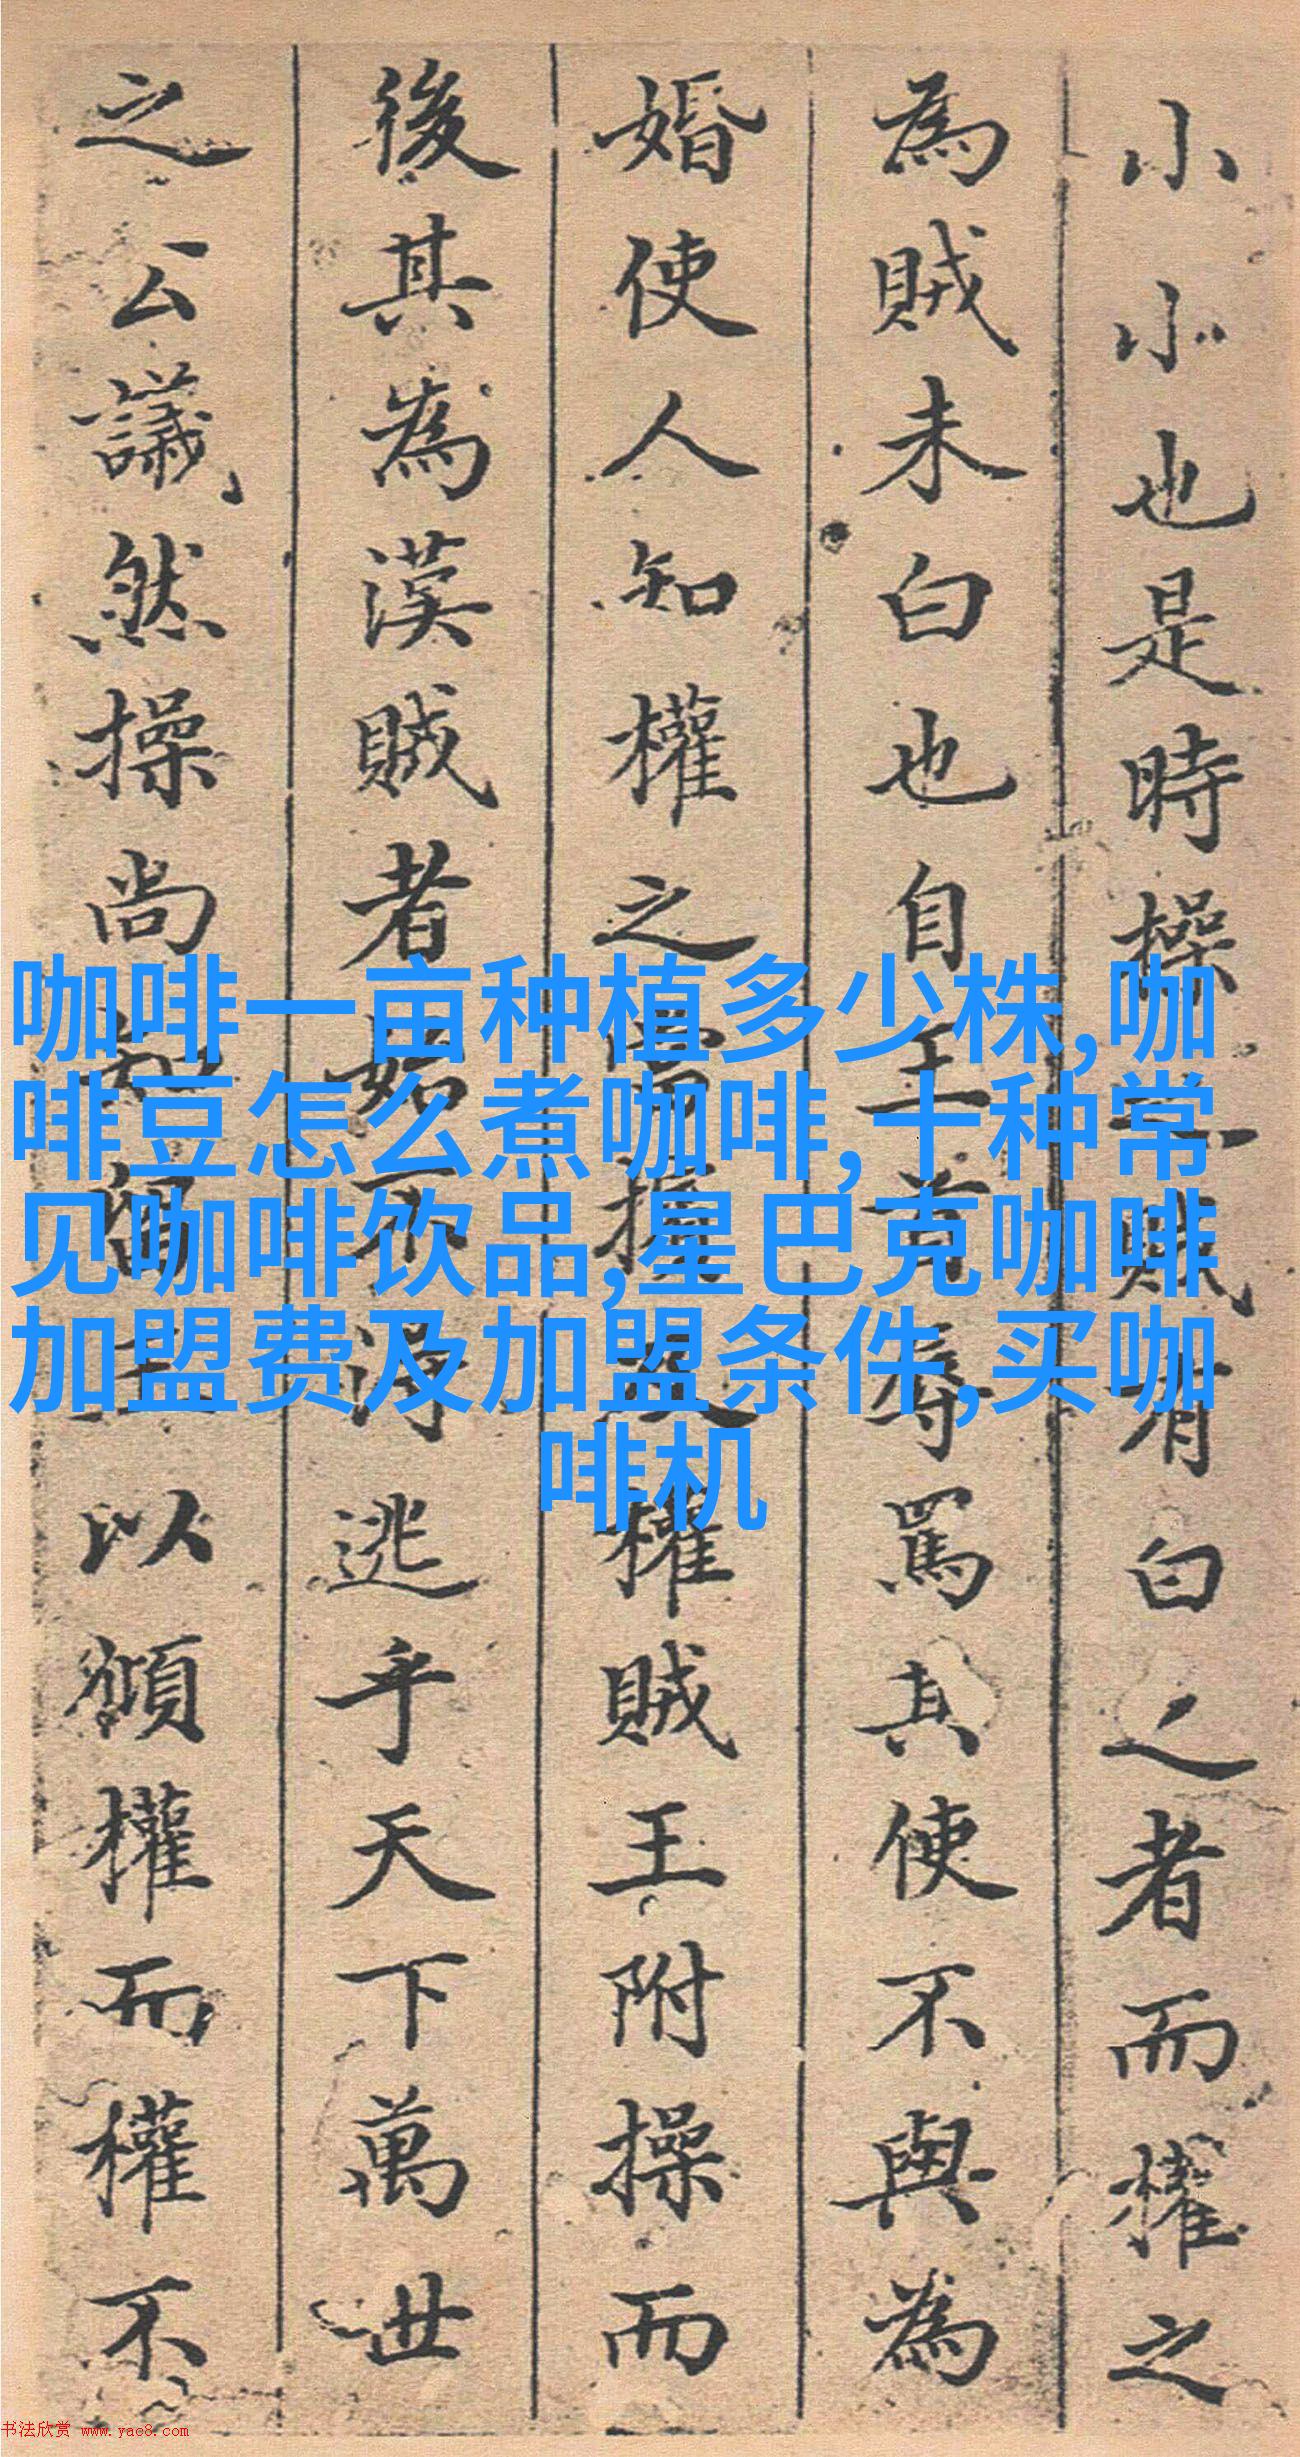 小小也是時操賊有白之者而權之
為賊未白也自王首辱罵其使不與為
婚使人知權之操權賊王附操而
後其為漢賊者始不得逃乎天下萬世
之公議然操尚以權而權不
咖啡一亩种植多少株,咖
啡豆怎么煮咖啡,十种常
见咖啡饮品,星巴克咖啡
加盟费及加盟条件,买咖
啡机
书法欣赏 www.yac8.com